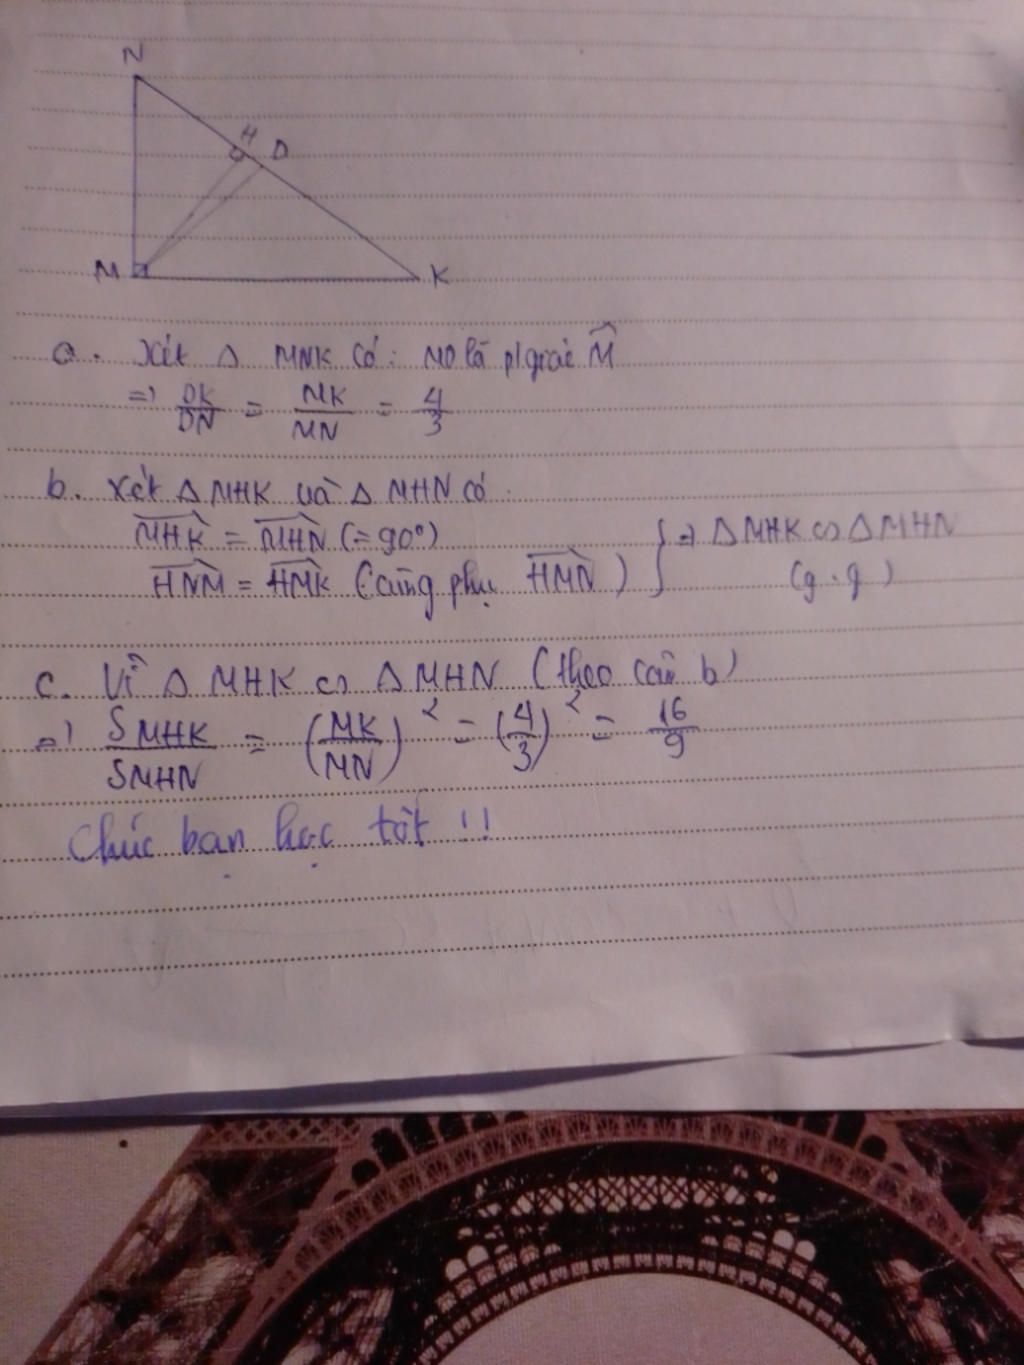 N
H D
M K
a. Xét Δ MNK có: MD là p/giác M̂
=> DK/DN = MK/MN = 4/3
b. Xét Δ MHK và Δ MHN có
MHK = MHN (= 90°)
HNM = HMK (cùng phụ HMN) } => Δ MHK ∽ Δ MHN
(g.g)
c. Vì Δ MHK ∽ Δ MHN (theo câu b)
=> SMHK/SMHN = (MK/MN)² = (4/3)² = 16/9
Chúc bạn học tốt !!